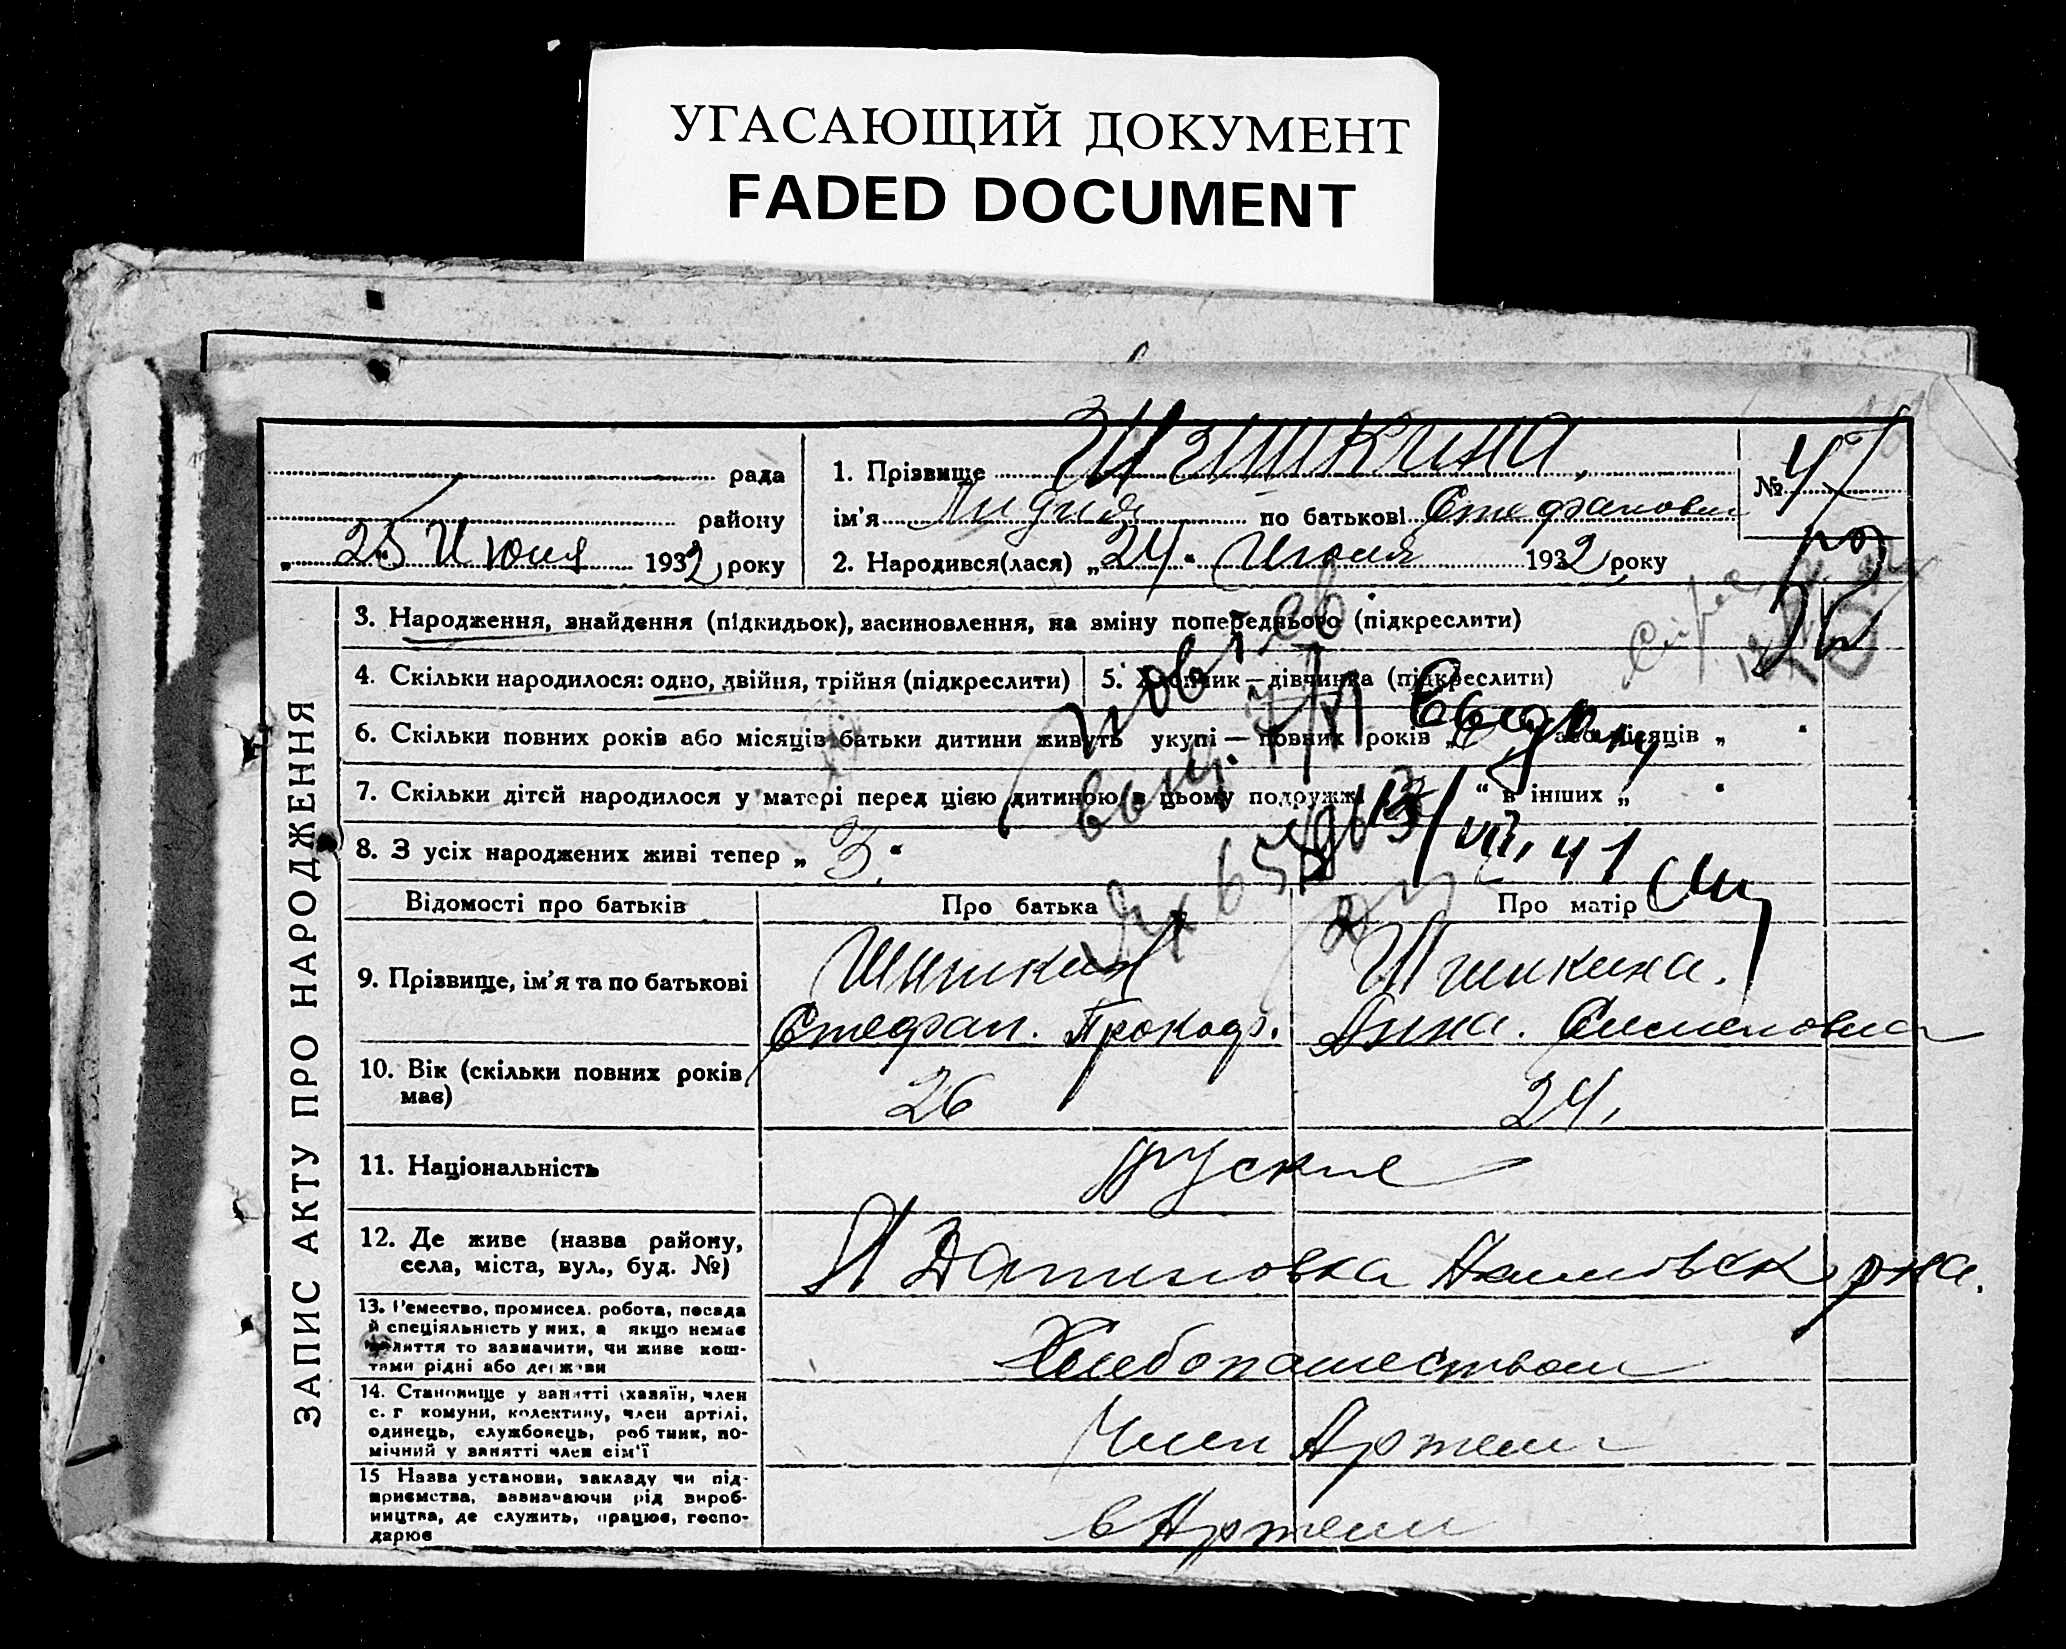 УГАСАЮЩИЙ ДОКУМЕНТ
FADED DOCUMENT
рада
району
25 Июня 1932 року
1. Прізвище Шишкина
ім'я Лидия по батькові Стефановна
2. Народився(лася) „24“ Июня 1932 року
№ 47
ЗАПИС АКТУ ПРО НАРОДЖЕННЯ
3. Народження, знайдення (підкидьок), засиновлення, на зміну попереднього (підкреслити)
4. Скільки народилося: одно, двійня, трійня (підкреслити)
5. Хлопчик — дівчинка (підкреслити)
6. Скільки повних років або місяців батьки дитини живуть укупі — повних років „ або місяців „ “
7. Скільки дітей народилося у матері перед цією дитиною в цьому подружжі “ в інших „ “
8. З усіх народжених живі тепер „ 3 “
повт. св.
выд.
VII 41
Відомості про батьків
Про батька
Про матір
9. Прізвище, ім'я та по батькові
Шишкин
Стефан. Прокоф.
Шишкина.
Анна. Семеновна
10. Вік (скільки повних років має)
26
24.
11. Національність
руские
12. Де живе (назва району,
села, міста, вул., буд. №)
Акимовск р-на.
13. Ремество, промисел. робота, посада
й спеціяльність у них, а якщо немає
заняття то зазначити, чи живе кош-
тами рідні або держави
Хлебопашеством
14. Становище у занятті (хазяїн, член
с. г комуни, колективу, член артілі,
одинець, службовець, робітник, по-
мічний у занятті член сім'ї
Член Артели
15 Назва установи, закладу чи під-
приємства, зазначаючи рід вироб-
ництва, де служить, працює, госпо-
дарює
в Артели